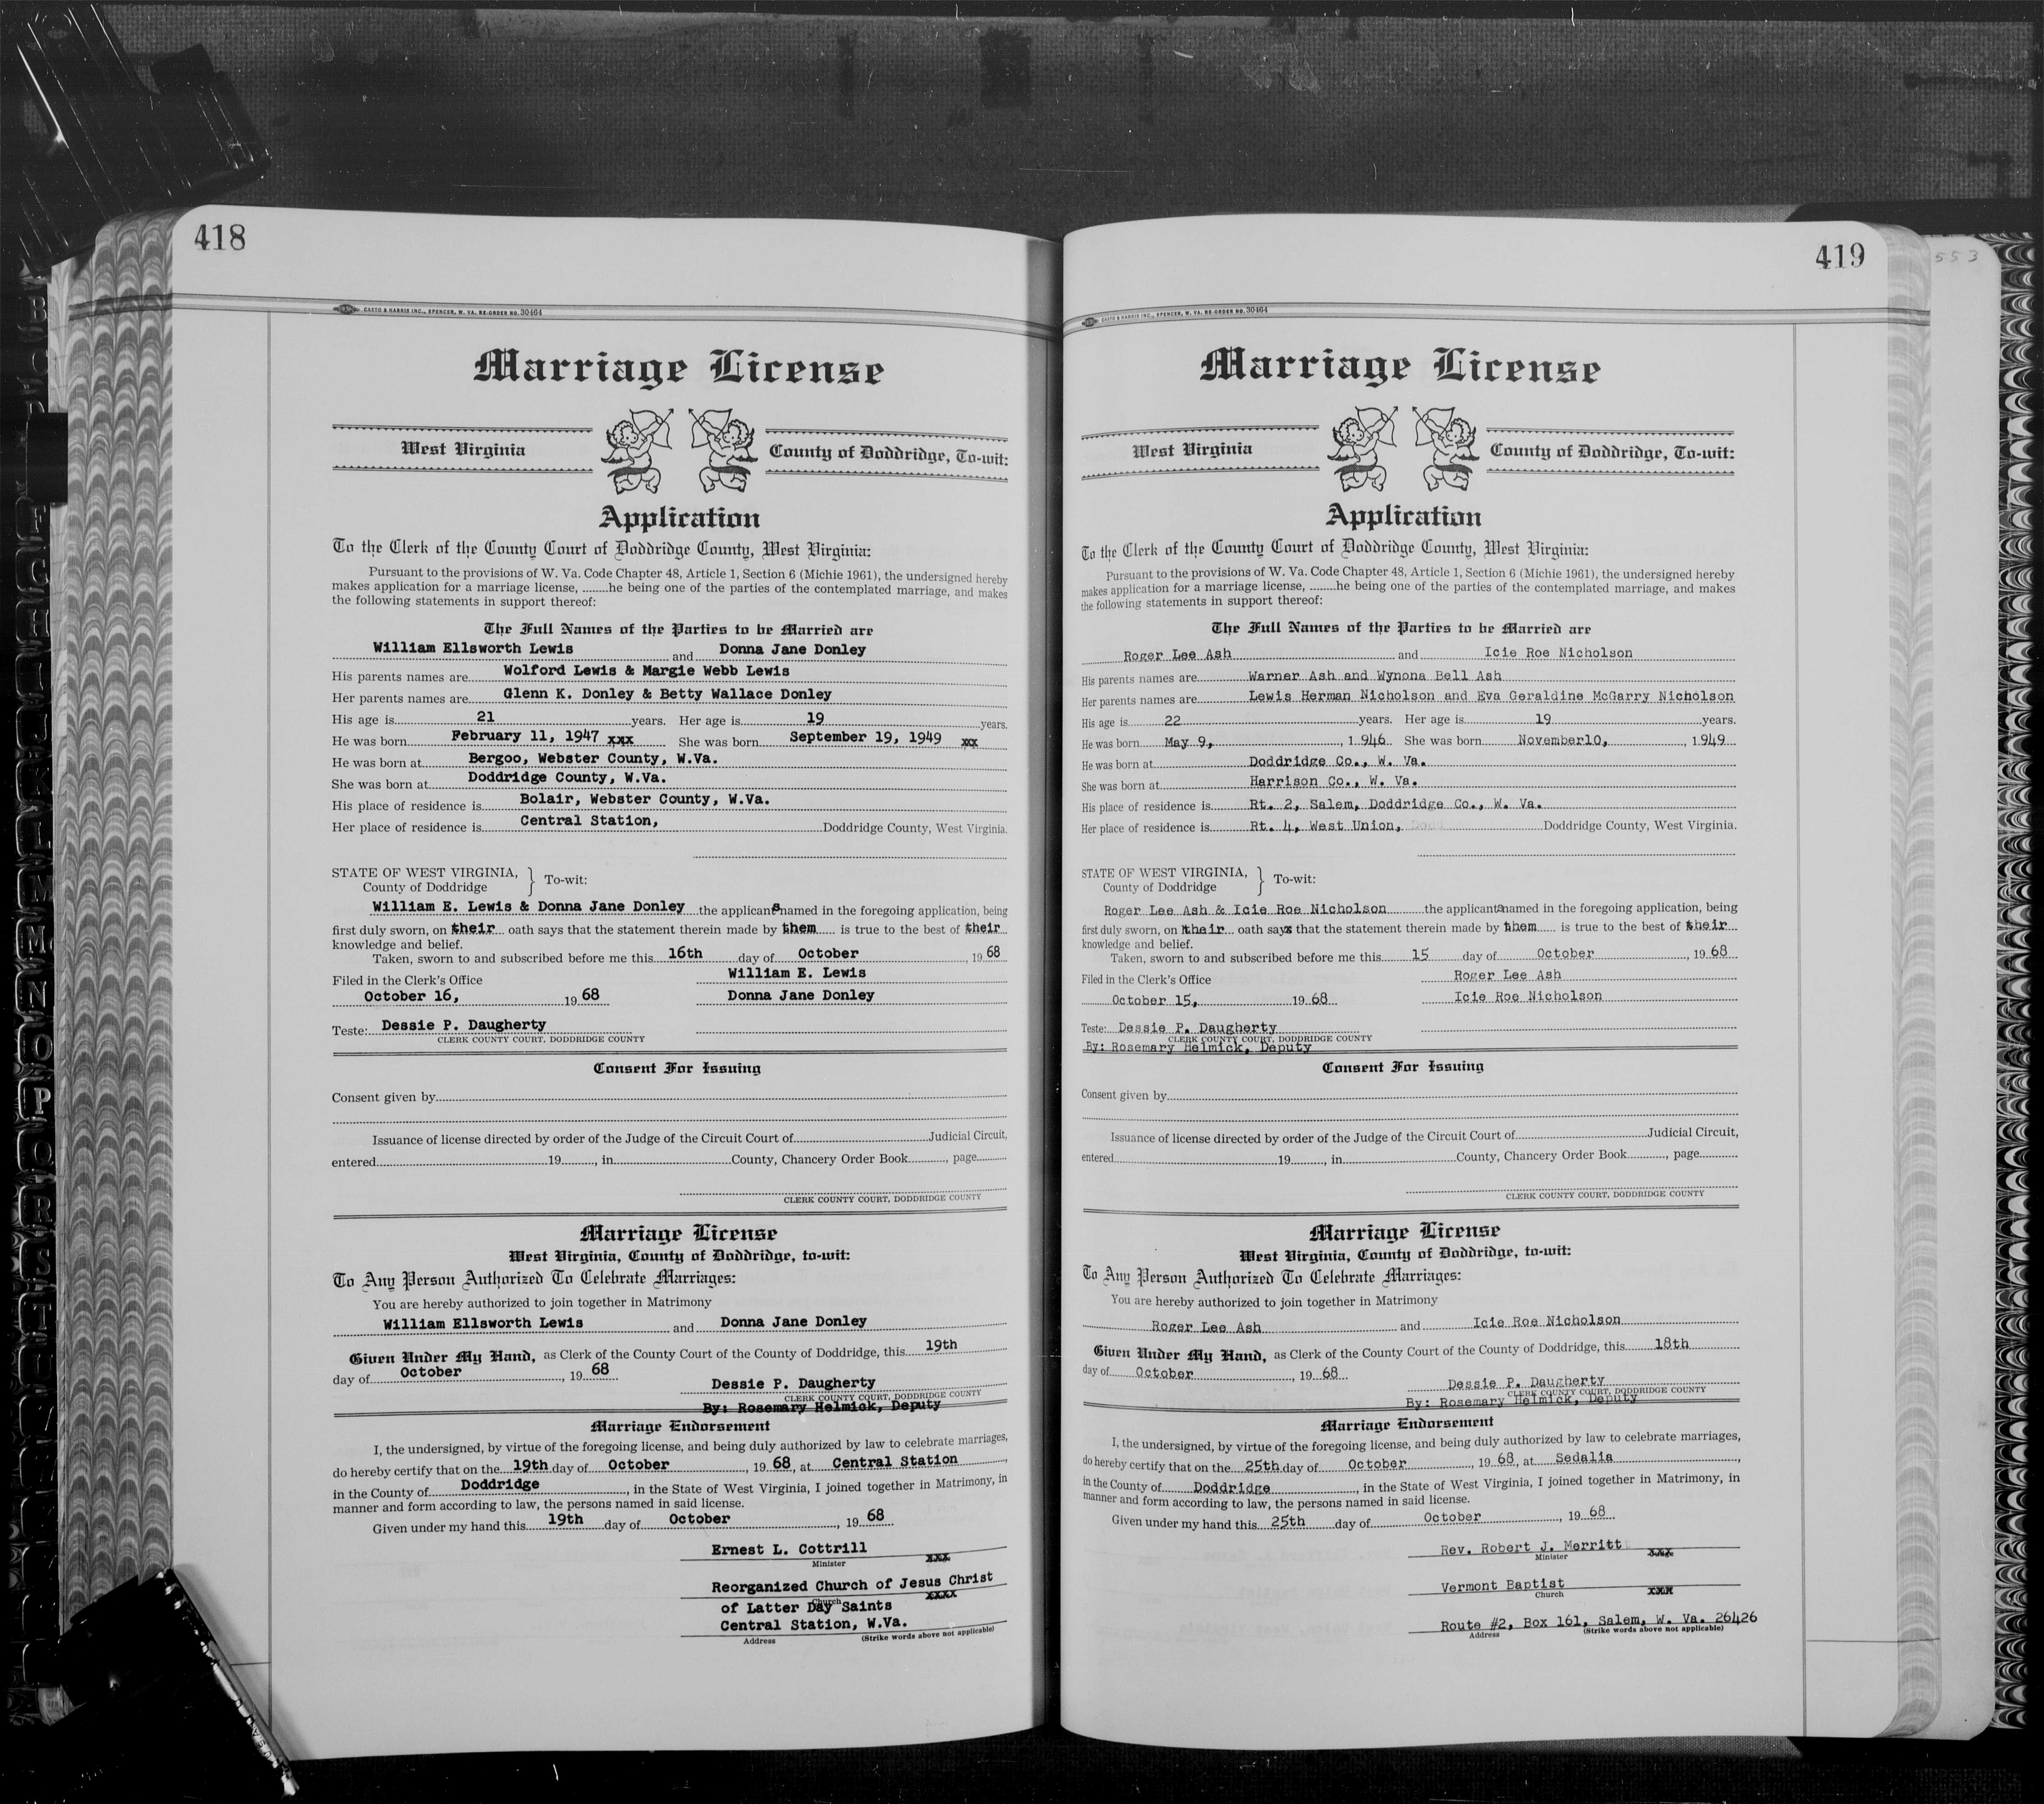 418
CASTO & HARRIS INC., SPENCER, W. VA. RE-ORDER NO. 30464
Marriage License
West Virginia
County of Doddridge, To-wit:
Application
To the Clerk of the County Court of Doddridge County, West Virginia:
Pursuant to the provisions of W. Va. Code Chapter 48, Article 1, Section 6 (Michie 1961), the undersigned hereby
makes application for a marriage license, ........he being one of the parties of the contemplated marriage, and makes
the following statements in support thereof:
The Full Names of the Parties to be Married are
William Ellsworth Lewis and Donna Jane Donley
His parents names are Wolford Lewis & Margie Webb Lewis
Her parents names are Glenn K. Donley & Betty Wallace Donley
His age is 21 years. Her age is 19 years.
He was born February 11, 1947 xxx She was born September 19, 1949 xx
He was born at Bergoo, Webster County, W.Va.
She was born at Doddridge County, W.Va.
His place of residence is Bolair, Webster County, W.Va.
Her place of residence is Central Station, Doddridge County, West Virginia.
STATE OF WEST VIRGINIA,
County of Doddridge } To-wit:
William E. Lewis & Donna Jane Donley the applicants named in the foregoing application, being
first duly sworn, on their oath says that the statement therein made by them is true to the best of their
knowledge and belief.
Taken, sworn to and subscribed before me this 16th day of October, 19 68
Filed in the Clerk's Office William E. Lewis
October 16, 19 68 Donna Jane Donley
Teste: Dessie P. Daugherty
CLERK COUNTY COURT, DODDRIDGE COUNTY
Consent For Issuing
Consent given by
Issuance of license directed by order of the Judge of the Circuit Court of Judicial Circuit,
entered 19 , in County, Chancery Order Book , page
CLERK COUNTY COURT, DODDRIDGE COUNTY
Marriage License
West Virginia, County of Doddridge, to-wit:
To Any Person Authorized To Celebrate Marriages:
You are hereby authorized to join together in Matrimony
William Ellsworth Lewis and Donna Jane Donley
Given Under My Hand, as Clerk of the County Court of the County of Doddridge, this 19th
day of October, 19 68
Dessie P. Daugherty
CLERK COUNTY COURT, DODDRIDGE COUNTY
By: Rosemary Helmick, Deputy
Marriage Endorsement
I, the undersigned, by virtue of the foregoing license, and being duly authorized by law to celebrate marriages,
do hereby certify that on the 19th day of October, 19 68, at Central Station,
in the County of Doddridge, in the State of West Virginia, I joined together in Matrimony, in
manner and form according to law, the persons named in said license.
Given under my hand this 19th day of October, 19 68
Ernest L. Cottrill
Minister xxx
Reorganized Church of Jesus Christ
Church xxxx
of Latter Day Saints
Central Station, W.Va.
Address (Strike words above not applicable)
419
553
CASTO & HARRIS INC., SPENCER, W. VA. RE-ORDER NO. 30464
Marriage License
West Virginia
County of Doddridge, To-wit:
Application
To the Clerk of the County Court of Doddridge County, West Virginia:
Pursuant to the provisions of W. Va. Code Chapter 48, Article 1, Section 6 (Michie 1961), the undersigned hereby
makes application for a marriage license, ........he being one of the parties of the contemplated marriage, and makes
the following statements in support thereof:
The Full Names of the Parties to be Married are
Roger Lee Ash and Icie Roe Nicholson
His parents names are Warner Ash and Wynona Bell Ash
Her parents names are Lewis Herman Nicholson and Eva Geraldine McGarry Nicholson
His age is 22 years. Her age is 19 years.
He was born May 9, , 1 946 She was born November10, , 1 949
He was born at Doddridge Co., W. Va.
She was born at Harrison Co., W. Va.
His place of residence is Rt. 2, Salem, Doddridge Co., W. Va.
Her place of residence is Rt. 4, West Union, Doddridge County, West Virginia.
STATE OF WEST VIRGINIA,
County of Doddridge } To-wit:
Roger Lee Ash & Icie Roe Nicholson the applicants named in the foregoing application, being
first duly sworn, on their oath sayx that the statement therein made by them is true to the best of their
knowledge and belief.
Taken, sworn to and subscribed before me this 15 day of October, 19 68
Filed in the Clerk's Office Roger Lee Ash
October 15, 19 68 Icie Roe Nicholson
Teste: Dessie P. Daugherty
CLERK COUNTY COURT, DODDRIDGE COUNTY
By: Rosemary Helmick, Deputy
Consent For Issuing
Consent given by
Issuance of license directed by order of the Judge of the Circuit Court of Judicial Circuit,
entered 19 , in County, Chancery Order Book , page
CLERK COUNTY COURT, DODDRIDGE COUNTY
Marriage License
West Virginia, County of Doddridge, to-wit:
To Any Person Authorized To Celebrate Marriages:
You are hereby authorized to join together in Matrimony
Roger Lee Ash and Icie Roe Nicholson
Given Under My Hand, as Clerk of the County Court of the County of Doddridge, this 18th
day of October, 19 68
Dessie P. Daugherty
CLERK COUNTY COURT, DODDRIDGE COUNTY
By: Rosemary Helmick, Deputy
Marriage Endorsement
I, the undersigned, by virtue of the foregoing license, and being duly authorized by law to celebrate marriages,
do hereby certify that on the 25th day of October, 19 68, at Sedalia,
in the County of Doddridge, in the State of West Virginia, I joined together in Matrimony, in
manner and form according to law, the persons named in said license.
Given under my hand this 25th day of October, 19 68
Rev. Robert J. Merritt
Minister xxx
Vermont Baptist
Church xxx
Route #2, Box 161, Salem, W. Va. 26426
Address (Strike words above not applicable)